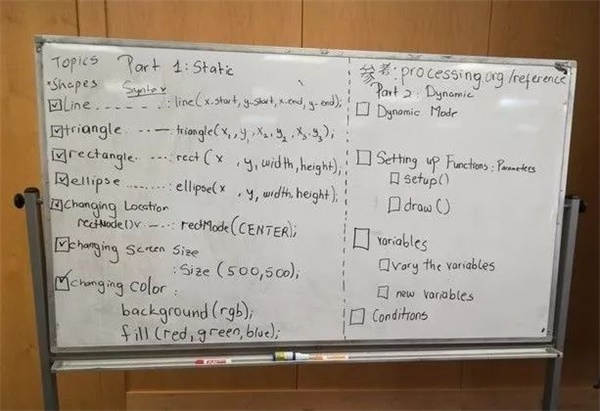 Topics Part 1: Static
Shapes Syntax
Line ------: line(x_start, y_start, x_end, y_end);
triangle ..-- triangle(x1, y1, x2, y2, x3, y3);
rectangle ....: rect(x, y, width, height);
ellipse .....: ellipse(x, y, width, height);
Changing Location
rectMode() --.: rectMode(CENTER);
changing Screen Size
: Size (500,500);
changing color :
background (rgb);
fill (red, green, blue);
参考: processing.org/reference
Part 2: Dynamic
Dynamic Mode
Setting up Functions: Parameters
setup()
draw()
variables
vary the variables
new variables
Conditions